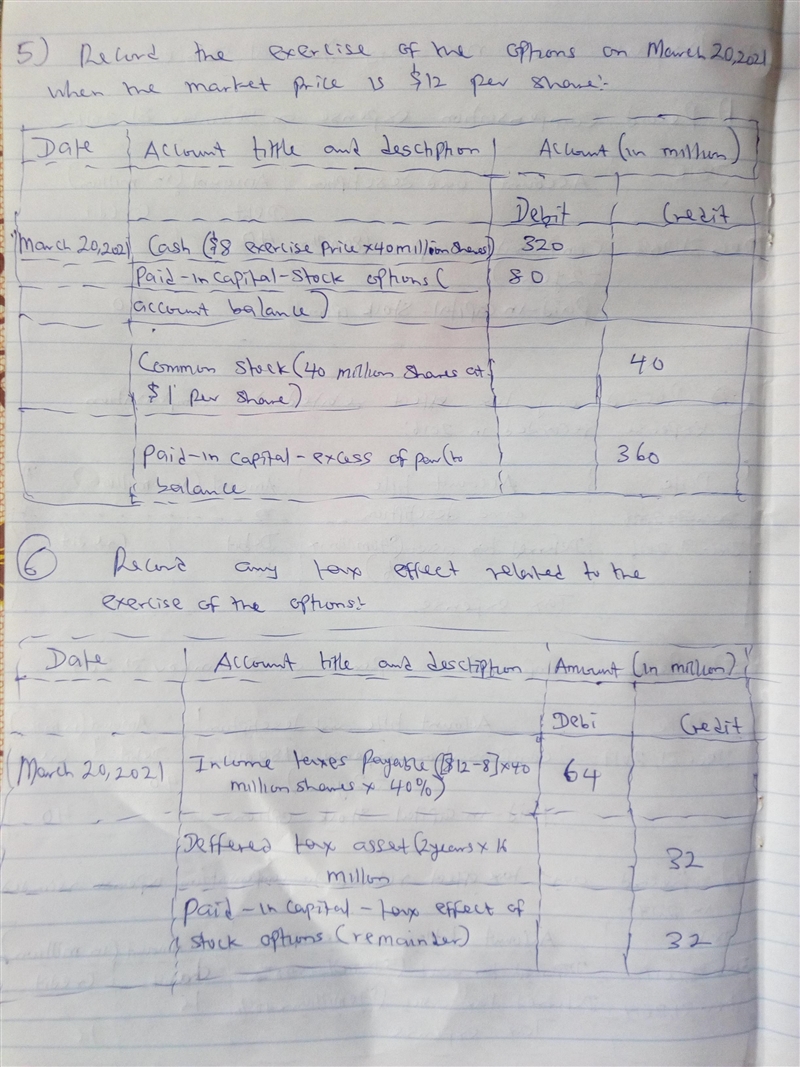 5) Record the exercise of the options on March 20,2021
when the market price is $12 per share:-
Date Account tittle and description Account (in million)
Debit Credit
March 20,2021 Cash ($8 exercise price x40million shares) 320
Paid-in capital-stock options ( 80
account balance)
Common stock (40 million shares at 40
$1 per share)
Paid-in capital-excess of par (to 360
balance
6 Record any tax effect related to the
exercise of the options:-
Date Account title and description Amount (in million)
Debi Credit
(March 20,2021 Income taxes payable ([$12-8]x40 64
million shares x 40%)
Deffered tax asset (2years x 16 32
millon
Paid-in capital-tax effect of
stock options (remainder) 32